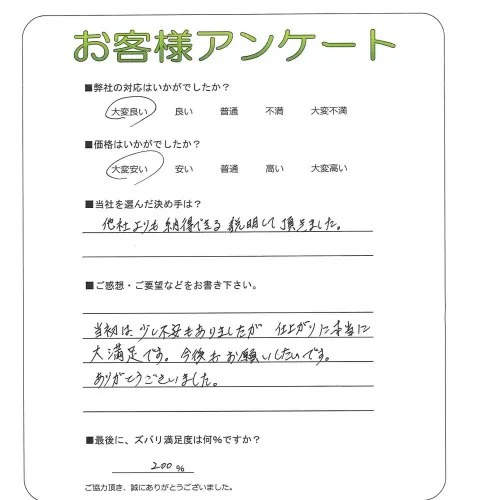 お客様アンケート
■弊社の対応はいかがでしたか？
大変良い 良い 普通 不満 大変不満
■価格はいかがでしたか？
大変安い 安い 普通 高い 大変高い
■当社を選んだ決め手は？
他社よりも納得できる説明して頂きました。
■ご感想・ご要望などをお書き下さい。
当初は少し不安もありましたが 仕上がりに本当に
大満足です。今後もお願いしたいです。
ありがとうございました。
■最後に、ズバリ満足度は何%ですか？
200 %
ご協力頂き、誠にありがとうございました。